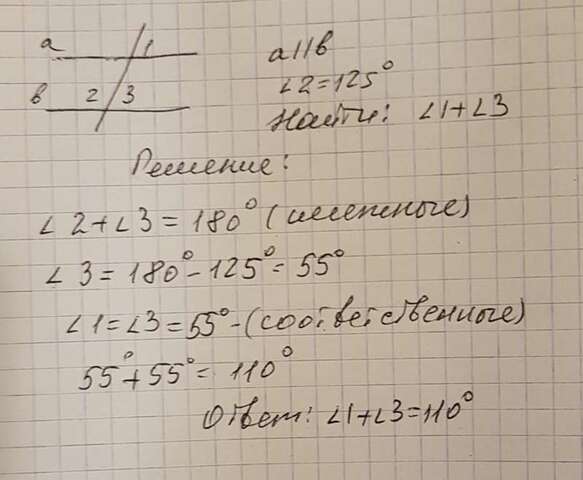 a 1
a||в
∠2=125°
в 2 3
Найти: ∠1+∠3
Решение:
∠2+∠3=180° (смежные)
∠3=180°-125°=55°
∠1=∠3=55°-(соответственные)
55°+55°=110°
Ответ: ∠1+∠3=110°